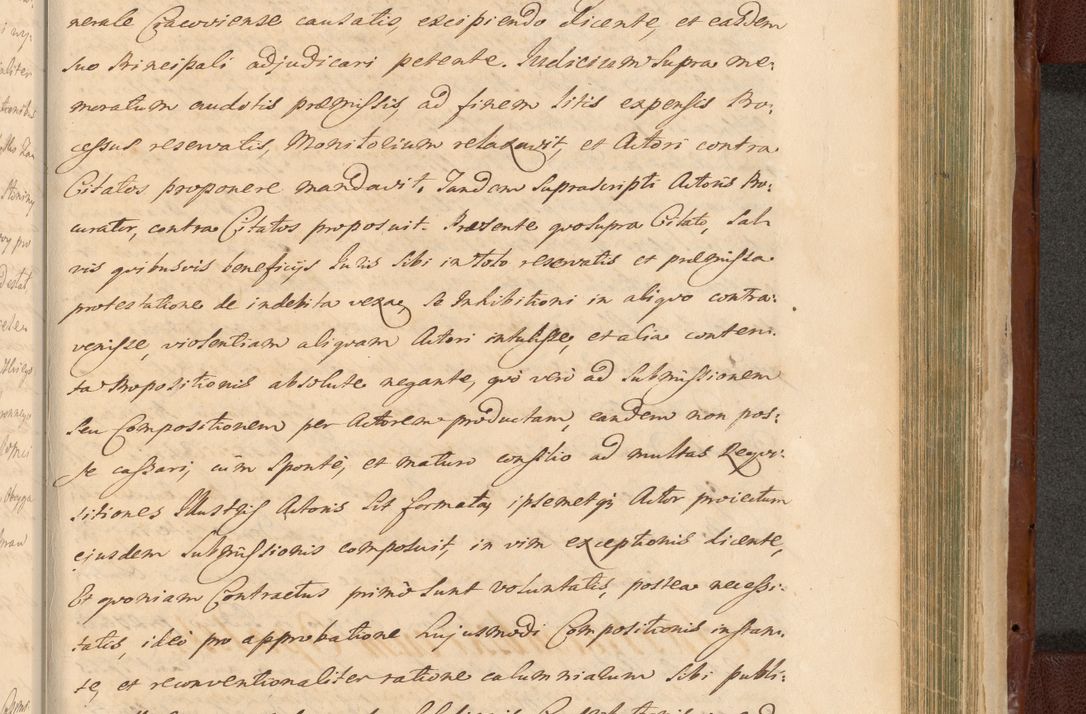 nerale Cracoviense causatis, excipiendo dicente, et easdem
suo Principali adjudicari petente. Judicium supra me-
moratum auditis præmissis ad finem litis expensis Pro-
cessus reservatis, Monitorium relaxavit, et Actori contra
Citatos proponere mandavit. Tandem suprascripti Actoris Pro-
curator, contra Citatos proposuit. Præsente quosupra Citato, sal-
vis quibusvis beneficijs Juris sibi in toto reservatis et præmissa
protestatione de indebita vexa, se Inhibitioni in aliquo contra-
venisse, violentiam aliquam Actori intulisse, et alia conten-
ta Propositionis absolute negante, quo vero ad Submissionem
seu Compositionem per Actorem productam, eandem non pos-
se cassari, cum sponte, et maturo consilio ad multas Requi-
sitiones Illustris Actoris sit formata, ipsemetq; Actor proiectum
eiusdem Submissionis composuit, in vim exceptionis dicente,
Et quoniam Contractus primo sunt voluntatis, postea necessi-
tatis, ideo pro approbatione hujusmodi Compositionis instan-
te, et reconventionaliter ratione calumniarum sibi publi-